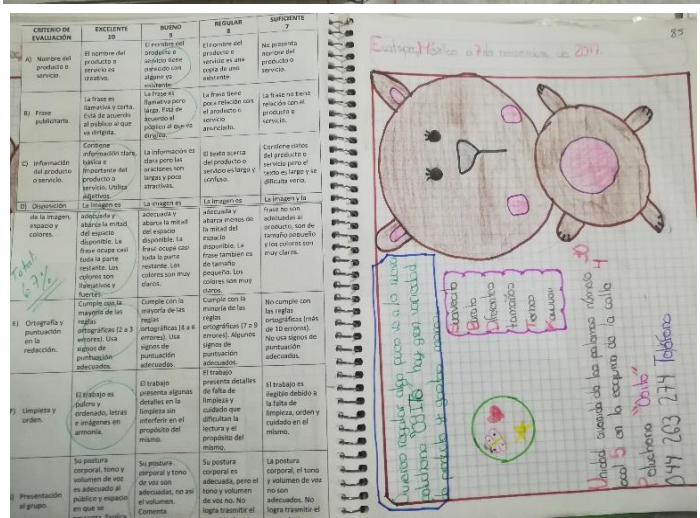 CRITERIO DE EVALUACIÓN
EXCELENTE
10
BUENO
9
REGULAR
8
SUFICIENTE
7
A) Nombre del producto o servicio.
El nombre del
producto o
servicio es
creativo.
El nombre del
producto o
servicio tiene
parecido con
alguno ya
existente.
El nombre del
producto o
servicio es una
copia de uno
existente.
No presenta
nombre del
producto o
servicio.
B) Frase
publicitaria.
La frase es
llamativa y corta.
Está de acuerdo
al público al que
va dirigida.
La frase es
llamativa pero
larga. Está de
acuerdo al
público al que va
dirigida.
La frase tiene
poca relación con
el producto o
servicio
anunciado.
La frase no tiene
relación con el
producto o
servicio.
C) Información
del producto
o servicio.
Contiene
información clara,
básica e
importante del
producto o
servicio. Utiliza
adjetivos.
La información es
clara pero las
oraciones son
largas y poco
atractivas.
El texto acerca
del producto o
servicio es largo y
confuso.
Contiene datos
del producto o
servicio pero el
texto es largo y se
dificulta
D) Disposición
de la imagen,
espacio y
colores.
La imagen es
adecuada y
abarca la mitad
del espacio
disponible. La
frase ocupa casi
toda la parte
restante. Los
colores son
llamativos y
fuertes.
La imagen es
adecuada y
abarca la mitad
del espacio
disponible. La
frase ocupa casi
toda la parte
restante. Los
colores son muy
claros.
La imagen es
adecuada y
abarca menos de
la mitad del
espacio
disponible. La
frase también es
de tamaño
pequeño. Los
colores son muy
claros.
La imagen y la
frase no son
adecuadas al
producto, son de
tamaño pequeño
y los colores son
muy claros.
Total:
E) Ortografía y
puntuación
en la
redacción.
Cumple con la
mayoría de las
reglas
ortográficas (2 a 3
errores). Usa
signos de
puntuación
adecuados.
Cumple con la
mayoría de las
reglas
ortográficas (4 a 6
errores). Usa
signos de
puntuación
adecuados.
Cumple con la
minoría de las
reglas
ortográficas (7 a 9
errores). Algunos
signos de
puntuación
adecuados.
No cumple con
las reglas
ortográficas (más
de 10 errores).
No usa signos de
puntuación
adecuados.
F) Limpieza y
orden.
El trabajo es
pulcro y
ordenado, letras
e imágenes en
armonía.
El trabajo
presenta algunas
detalles en la
limpieza sin
interferir en el
propósito del
mismo.
El trabajo
presenta detalles
de falta de
limpieza y
cuidado que
dificultan la
lectura y el
propósito del
mismo.
El trabajo es
ilegible debido a
la falta de
limpieza, orden y
cuidado en el
mismo.
Presentación
al grupo.
Su postura
corporal, tono y
volumen de voz
es adecuado al
público y espacio
en que se
Su postura
corporal y tono
de voz son
adecuadas, no así
el volumen.
Comenta
Su postura
corporal es
adecuada, pero el
tono y volumen
de voz no
logra trasmitir el
La postura
corporal, el tono
y volumen de voz
no son
adecuados. No
logra trasmitir el
85
México a 7 de noviembre de 2017.
Quieres regalar algo
"OSITO" hay gran variedad
Suavecito
Bonito
Diferentes
tamaños
Tierno
Unidad avenida de las palomas número 30
local 5 en la esquina de la calle 4
Peluchería "Osito"
044 263 274 Teléfono